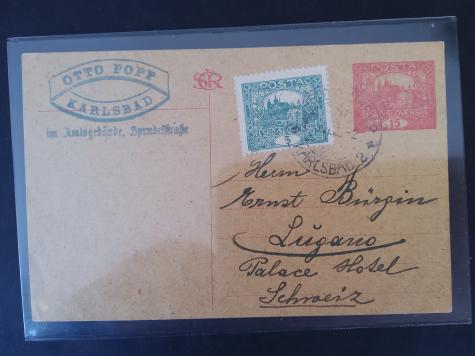 OTTO POPP
KARLSBAD
im Amtsgebäude, Sprudelstraße
ČSR
POSTA
5
15
KARLSBAD 2
Herrn
Ernst Bürgin
Lugano
Palace Hotel
Schweiz